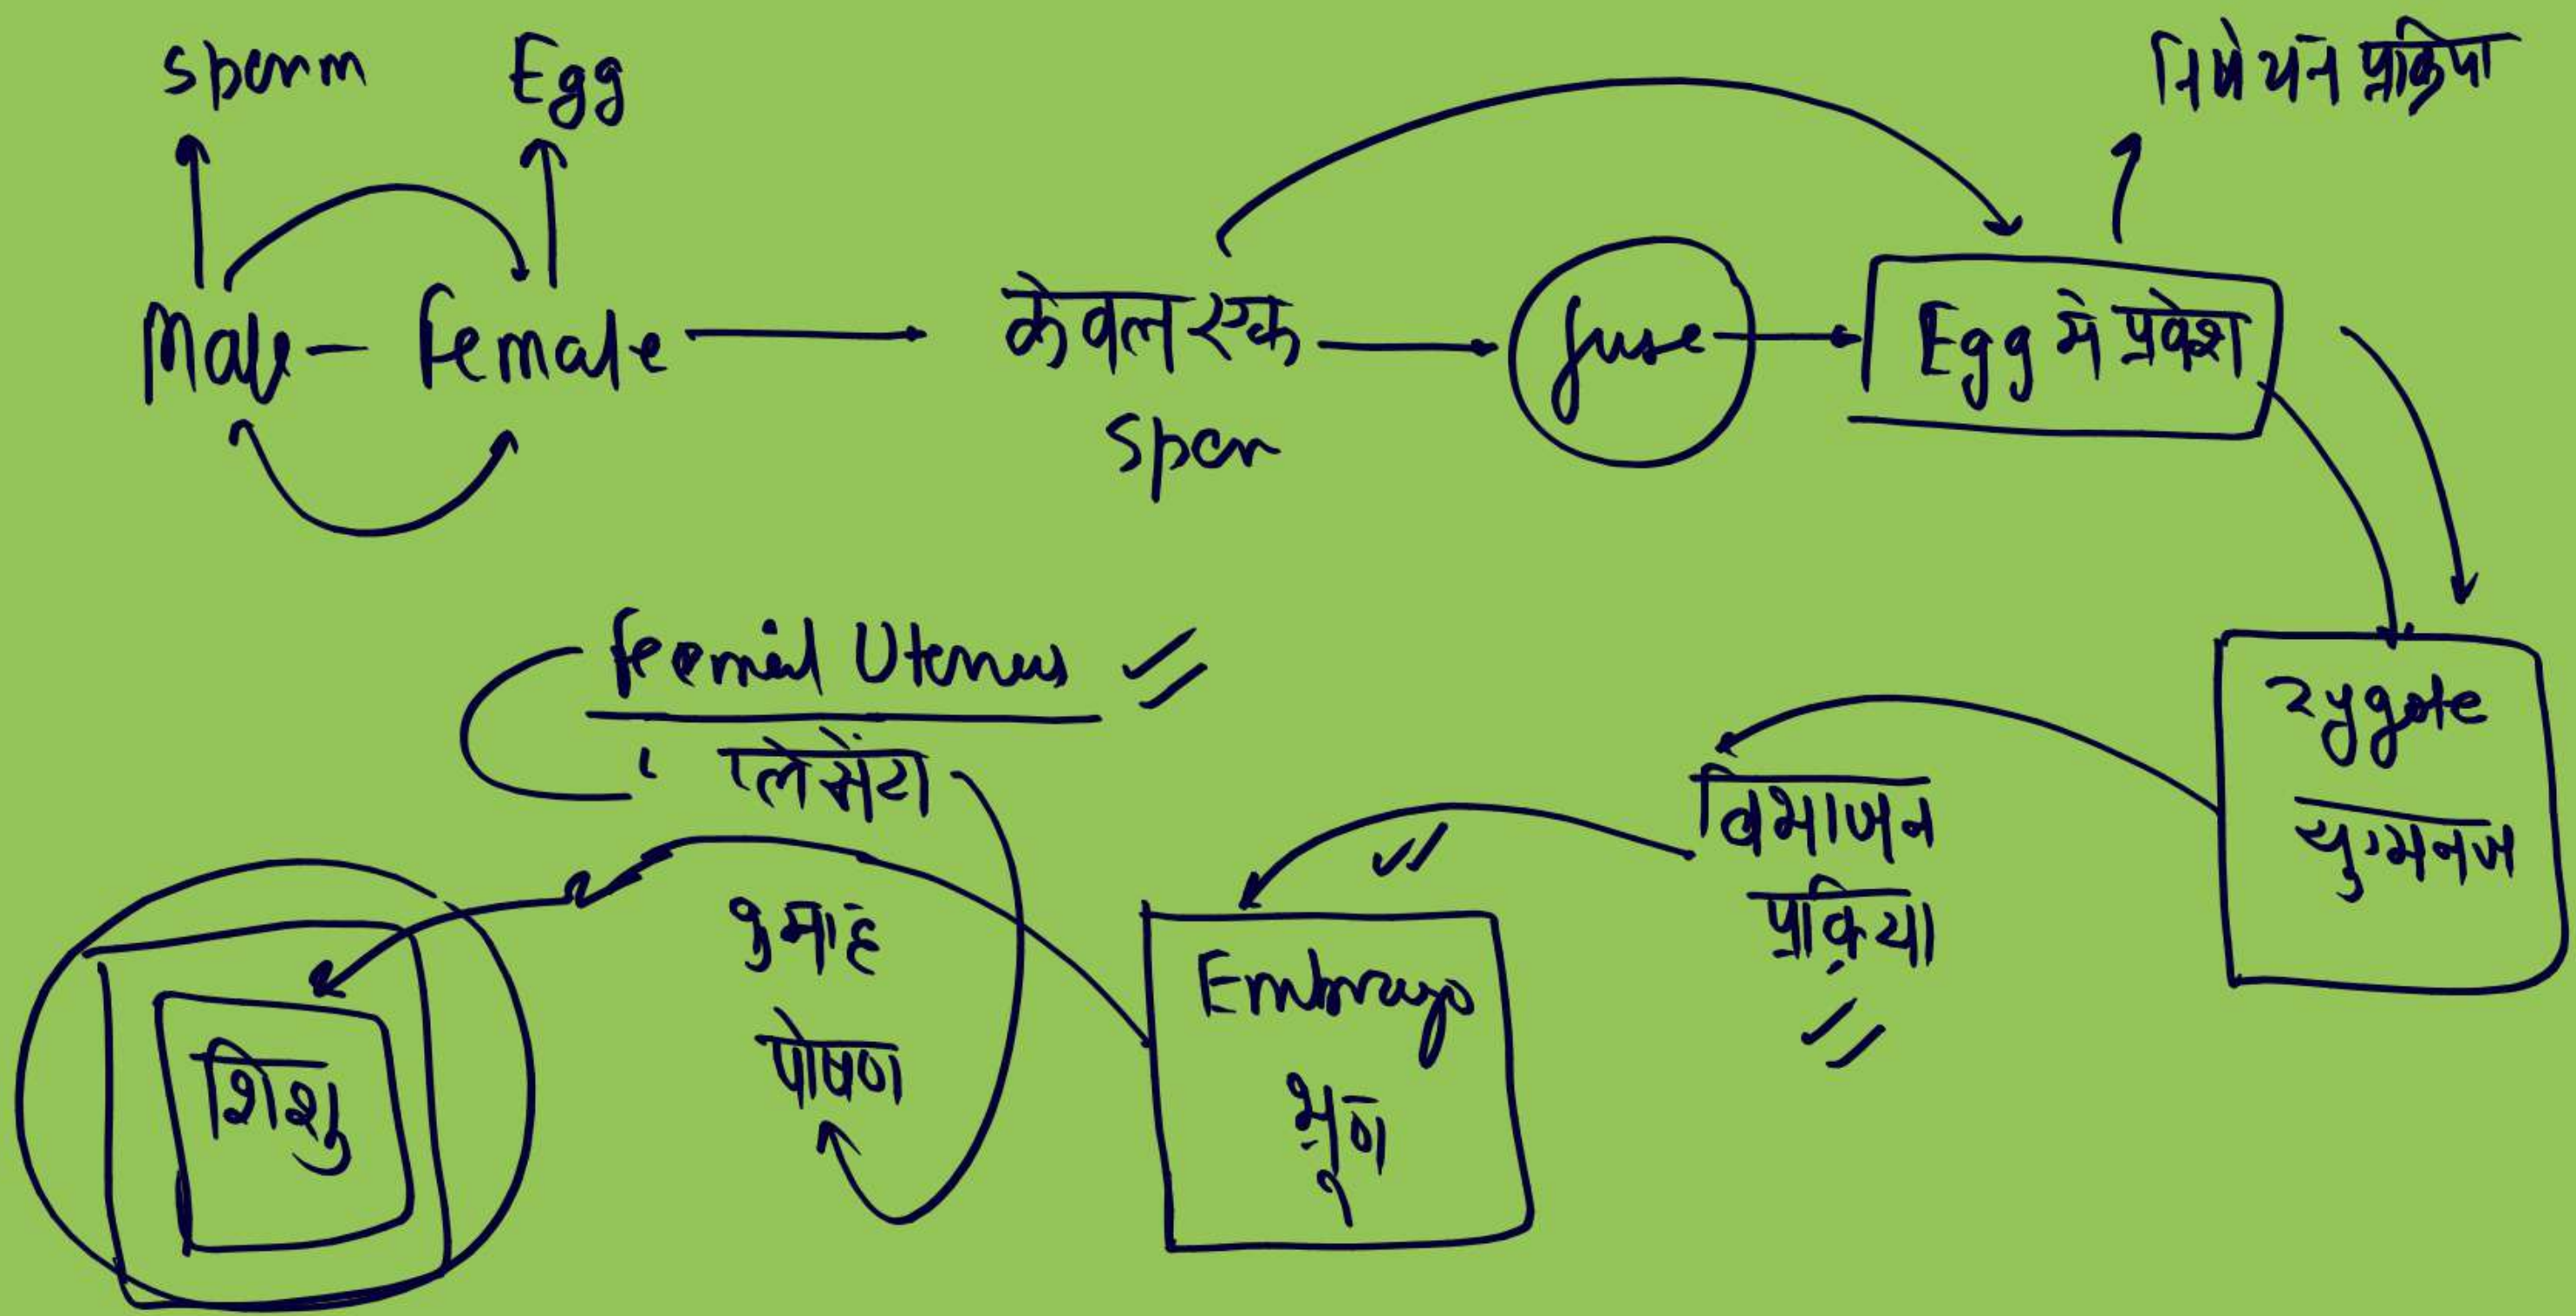 sperm
Egg
निषेचन प्रक्रिया
Male - Female
केवल एक
sperm
fuse
Egg में प्रवेश
Zygote
युग्मनज
विभाजन
प्रक्रिया
Embryo
भ्रूण
Uterus
प्लेसेंटा
9 माह
पोषण
शिशु